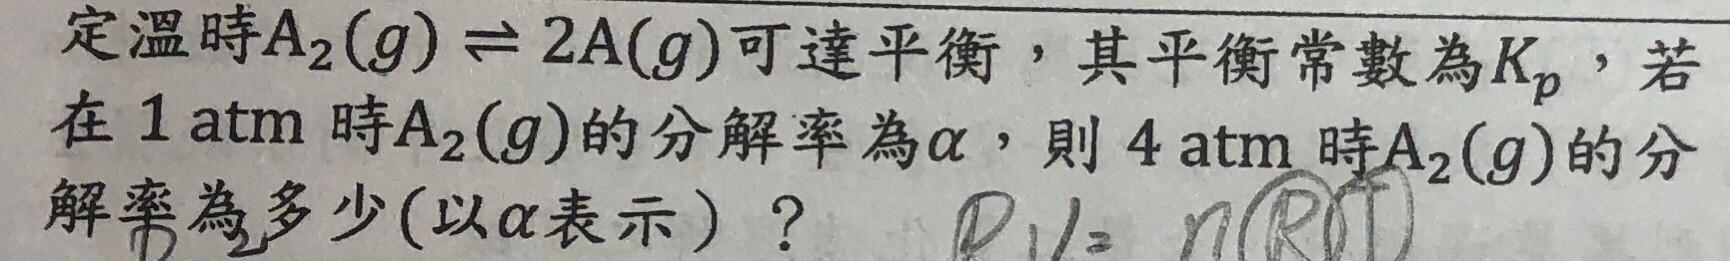 定溫時A₂(g) ⇌ 2A(g)可達平衡，其平衡常數為Kₚ，若
在 1 atm 時A₂(g)的分解率為α，則 4 atm 時A₂(g)的分
解率為多少(以α表示)？
PV= n(R)(T)